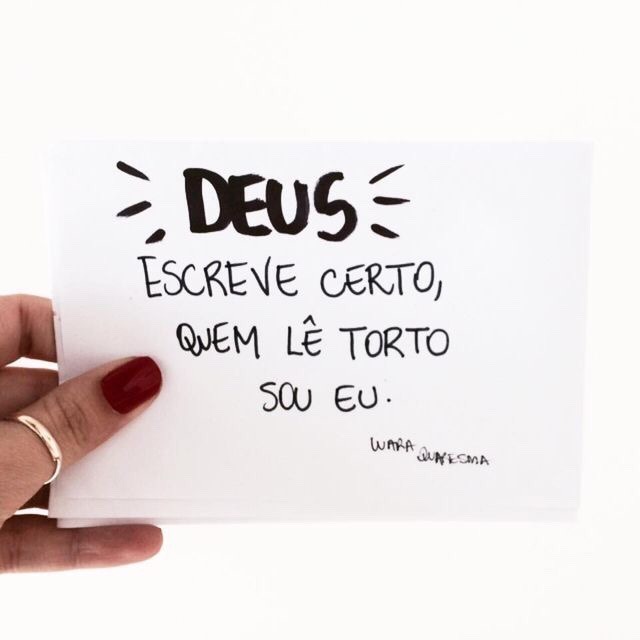 DEUS
ESCREVE CERTO,
QUEM LÊ TORTO
SOU EU.
WARA QUARESMA